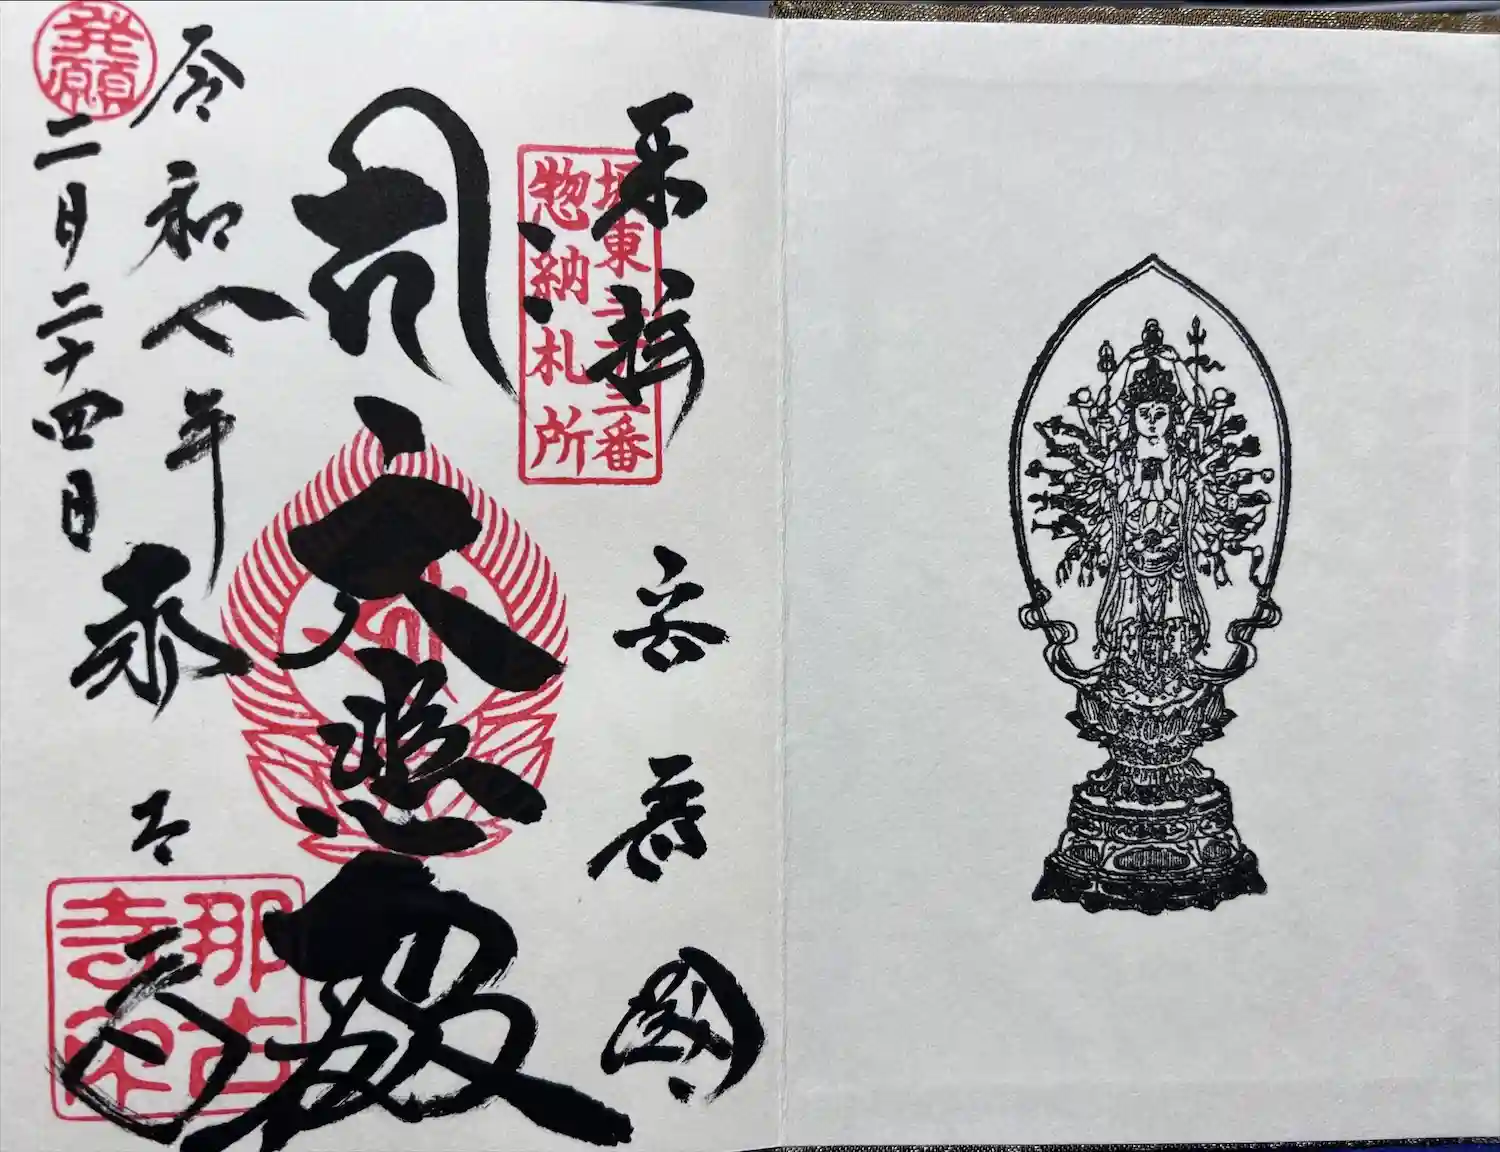 奉拝 安房國
坂東三十三番
惣納札所
大悲殿
令和八年
二月二十四日
那古寺
発願
那古
寺印